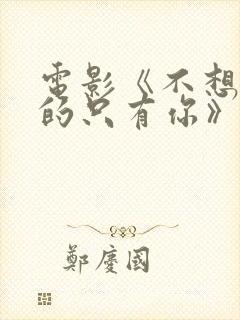 電影《不想
的只有你》
鄭慶國